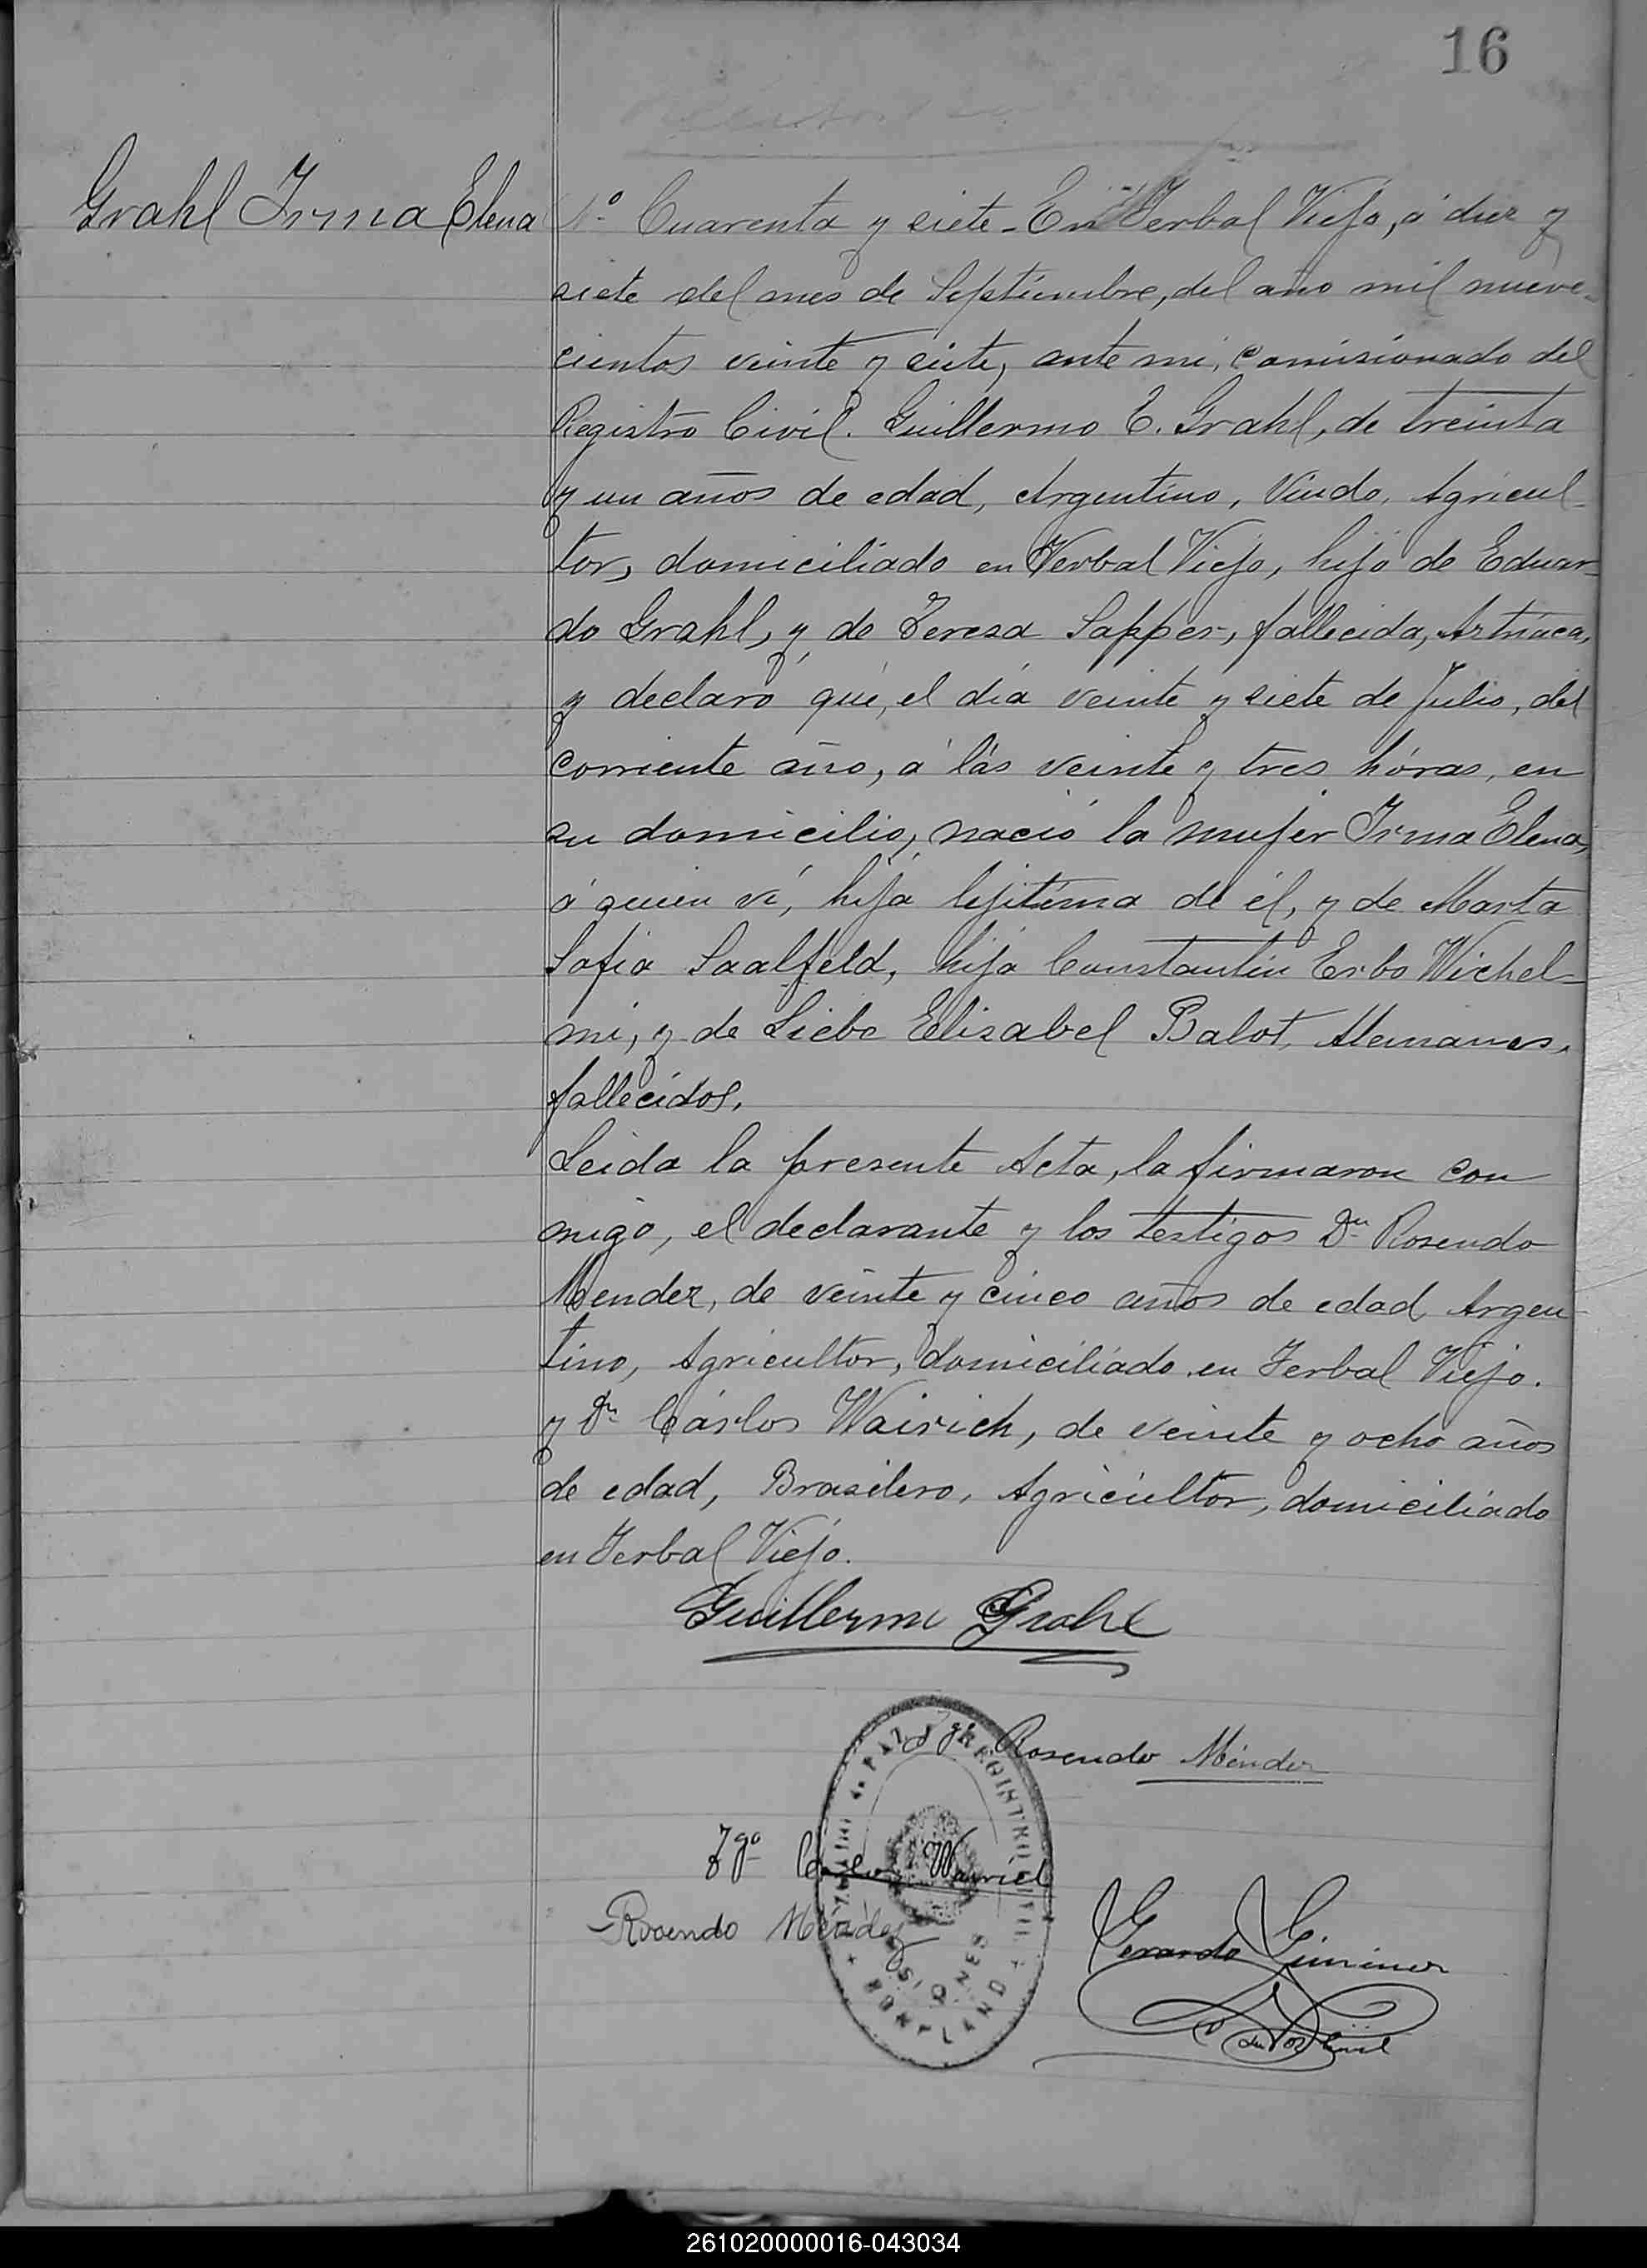 16
Grahl Irma Elena
Nº Cuarenta y siete - En Yerbal Viejo, á diez y
siete del mes de Septiembre, del año mil nueve-
cientos veinte y siete, ante mi, Comisionado del
Registro Civil. Guillermo E. Grahl, de treinta
y un años de edad, Argentino, Viudo, Agricul-
tor, domiciliado en Yerbal Viejo, hijo de Eduar-
do Grahl, y de Teresa Sapper, fallecida,
y declaró que, el día veinte y siete de Julio, del
corriente año, á lás veinte y tres hóras, en
su domicilio, nació la mujer Irma Elena,
á quien ví, hija lejitima de él, y de Marta
Sofia Saalfeld, hija Constantin Erbo Wichel-
mi, y de Liebe Elisabel Balot, Alemanes,
fallecidos.
Leida la presente Acta, la firmaron con
migo, el declarante y los testigos Dn Rosendo
Mendez, de veinte y cinco años de edad Argen-
tino, Agricultor, domiciliado en Yerbal Viejo.
y Dn Cárlos Wairich, de veinte y ocho años
de edad, Brasilero, Agricultor, domiciliado
en Yerbal Viejo.
Guillermo Grahl
Tgo Rosendo Méndez
PAZ Y REGISTRO CIVIL
Tgo Carlos Wairich
Rosendo Méndez
MISIONES
BONPLAND
Gerardo Giminez
261020000016-043034